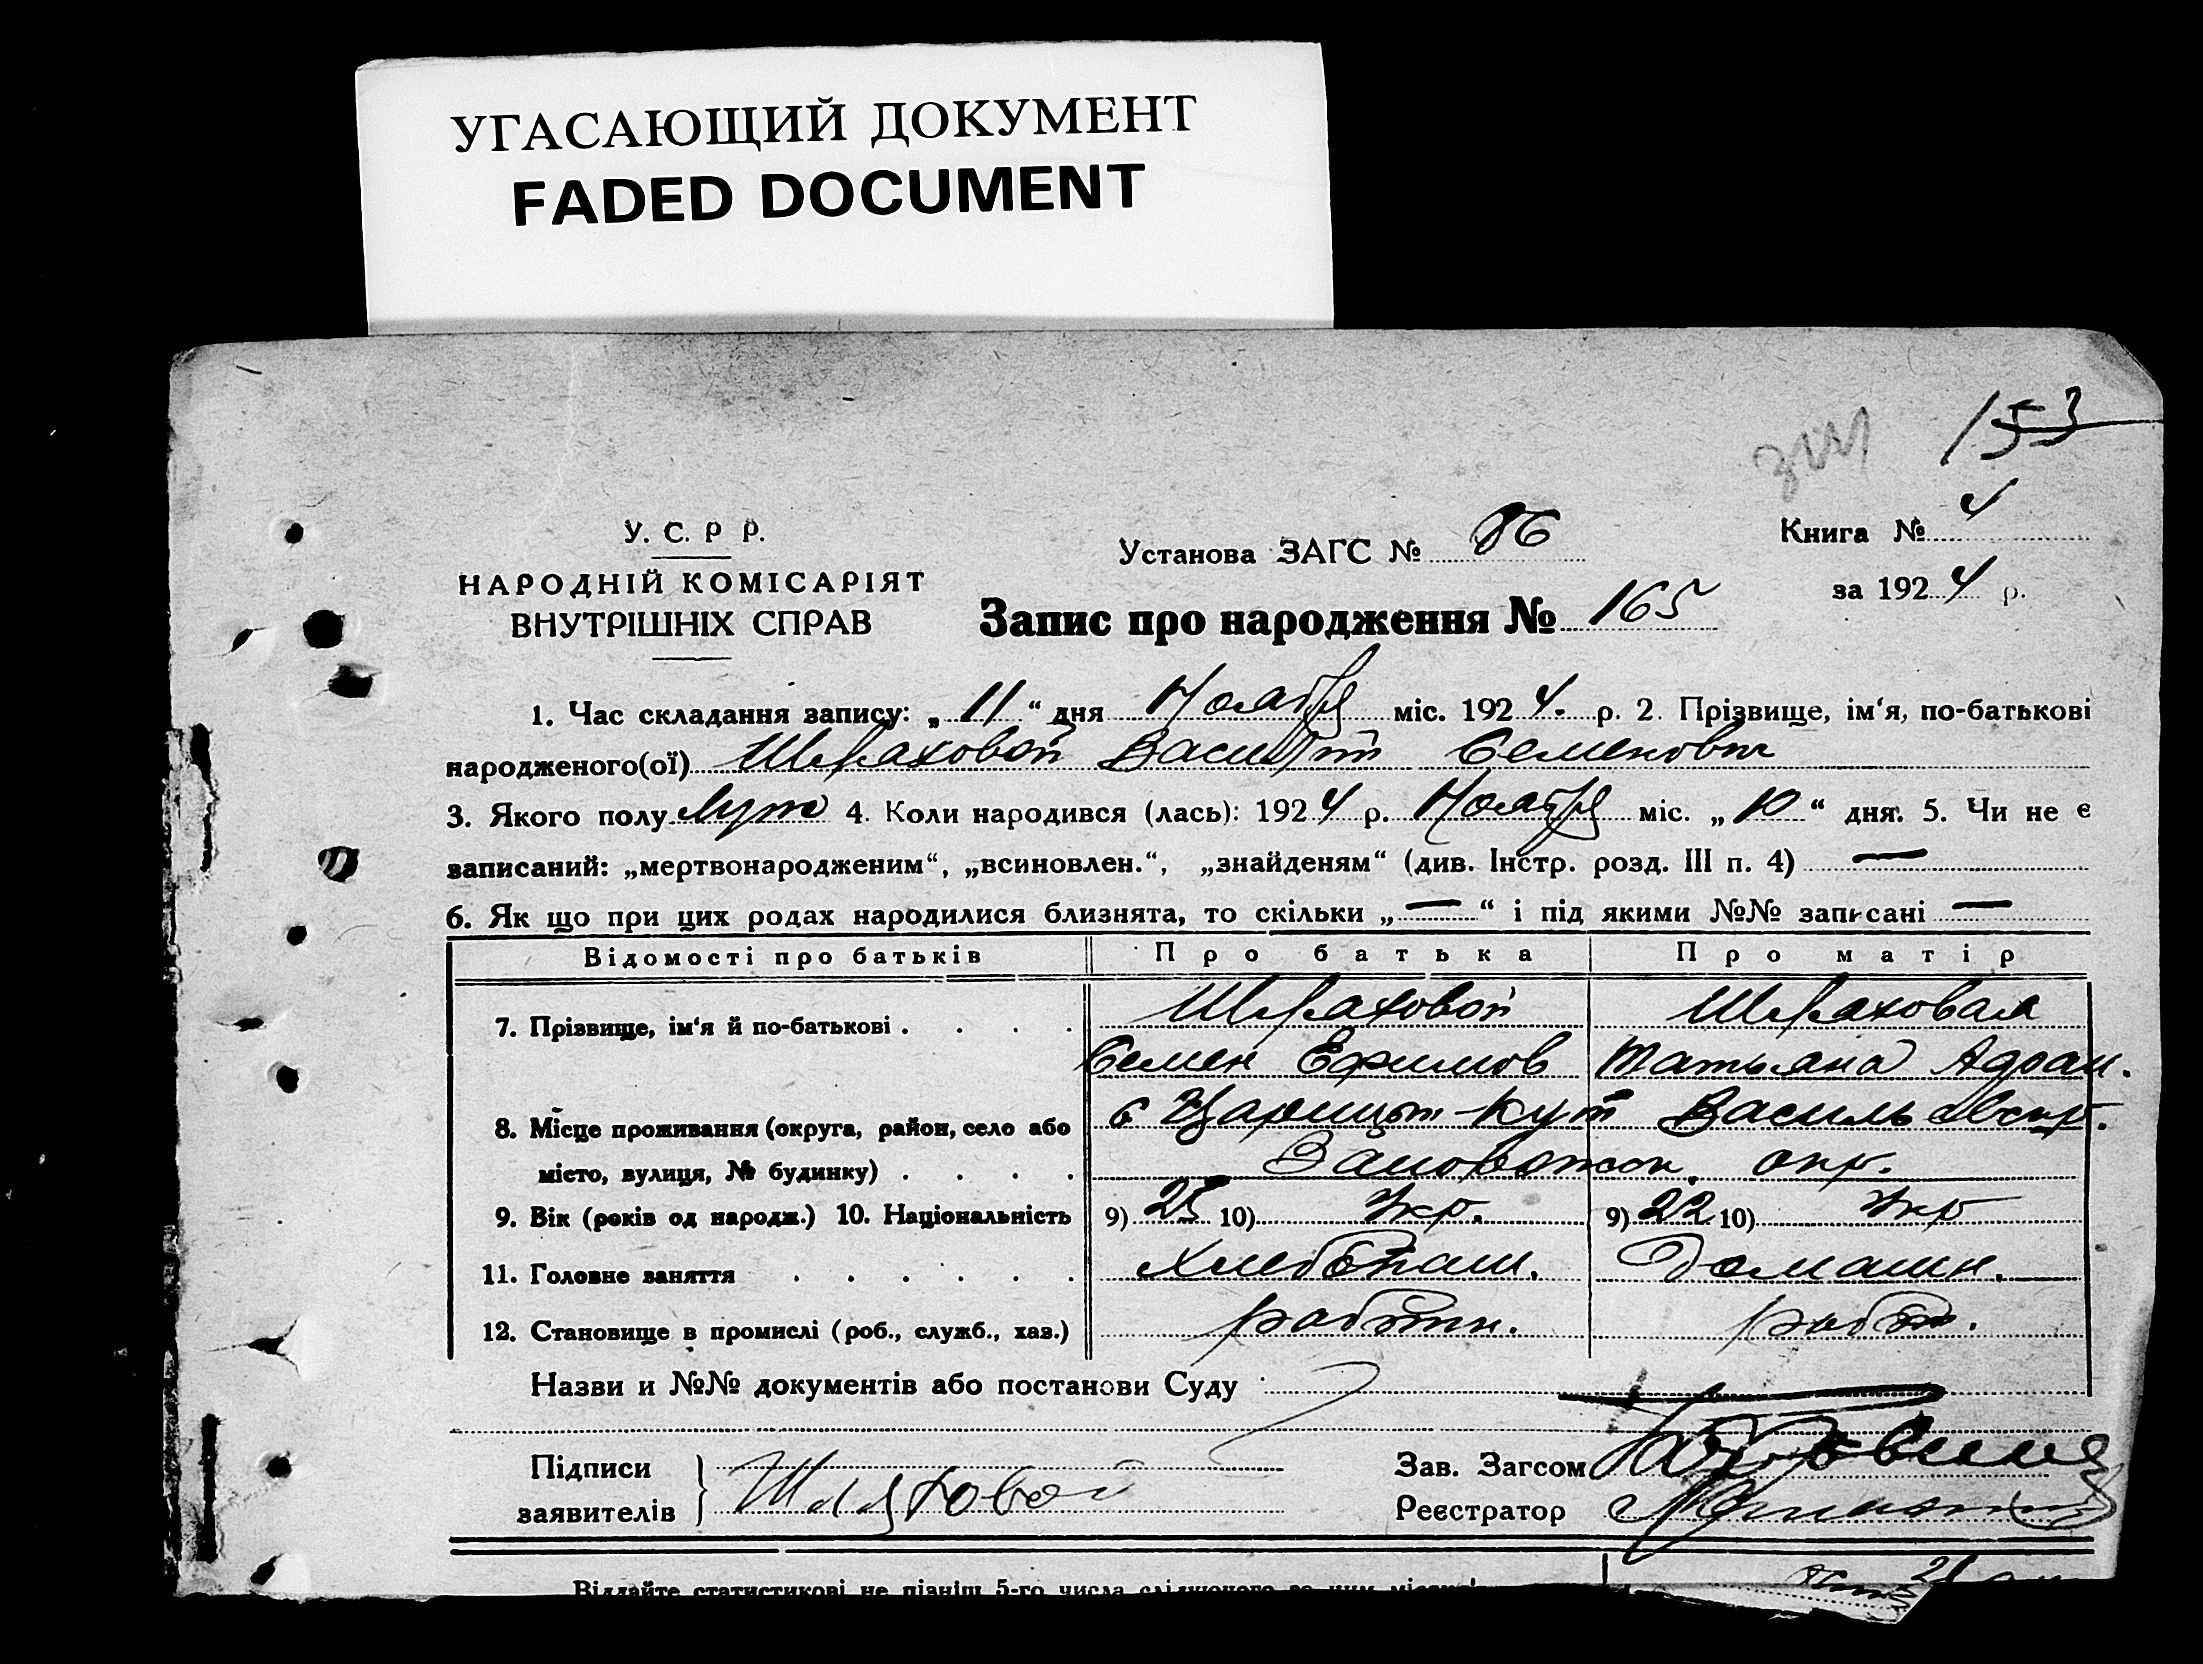 УГАСАЮЩИЙ ДОКУМЕНТ
FADED DOCUMENT
153
У. С. Р Р.
НАРОДНІЙ КОМІСАРІЯТ
ВНУТРІШНІХ СПРАВ
Установа ЗАГС № 86
Книга № 4
за 1924 р.
Запис про народження № 165
1. Час складання запису: „11“ дня Ноября міс. 1924. р. 2. Прізвище, ім‘я, по-батькові
народженого(ої) Шляховой Василий Семенович
3. Якого полу муж 4. Коли народився (лась): 1924 р. Ноября міс. „10“ дня. 5. Чи не є
записаний: „мертвонародженим“, „всиновлен.“, „знайденям“ (див. Інстр. розд. III п. 4) —
6. Як що при цих родах народилися близнята, то скільки „—“ і під якими №№ записані —
Відомості про батьків Про батька Про матір
7. Прізвище, ім‘я й по-батькові . . . . Шляховой Шляховая
Семен Ефимов Татьяна Адрам.
8. Місце проживання (округа, район, село або с Царицын-Кут Васильевск р.
місто, вулиця, № будинку) . . . . окр.
9. Вік (років од народж.) 10. Національність 9) 25 10) Укр. 9) 22 10) Укр
11. Головне заняття . . . . . . Хлебопаш. Домашн.
12. Становище в промислі (роб., служб., хаз.) работн. работ.
Назви и №№ документів або постанови Суду
Підписи
заявителів Шляховой
Зав. Загсом
Реєстратор
Віддайте статистикові не пізніш 5-го числа слідуючого за цим місяця